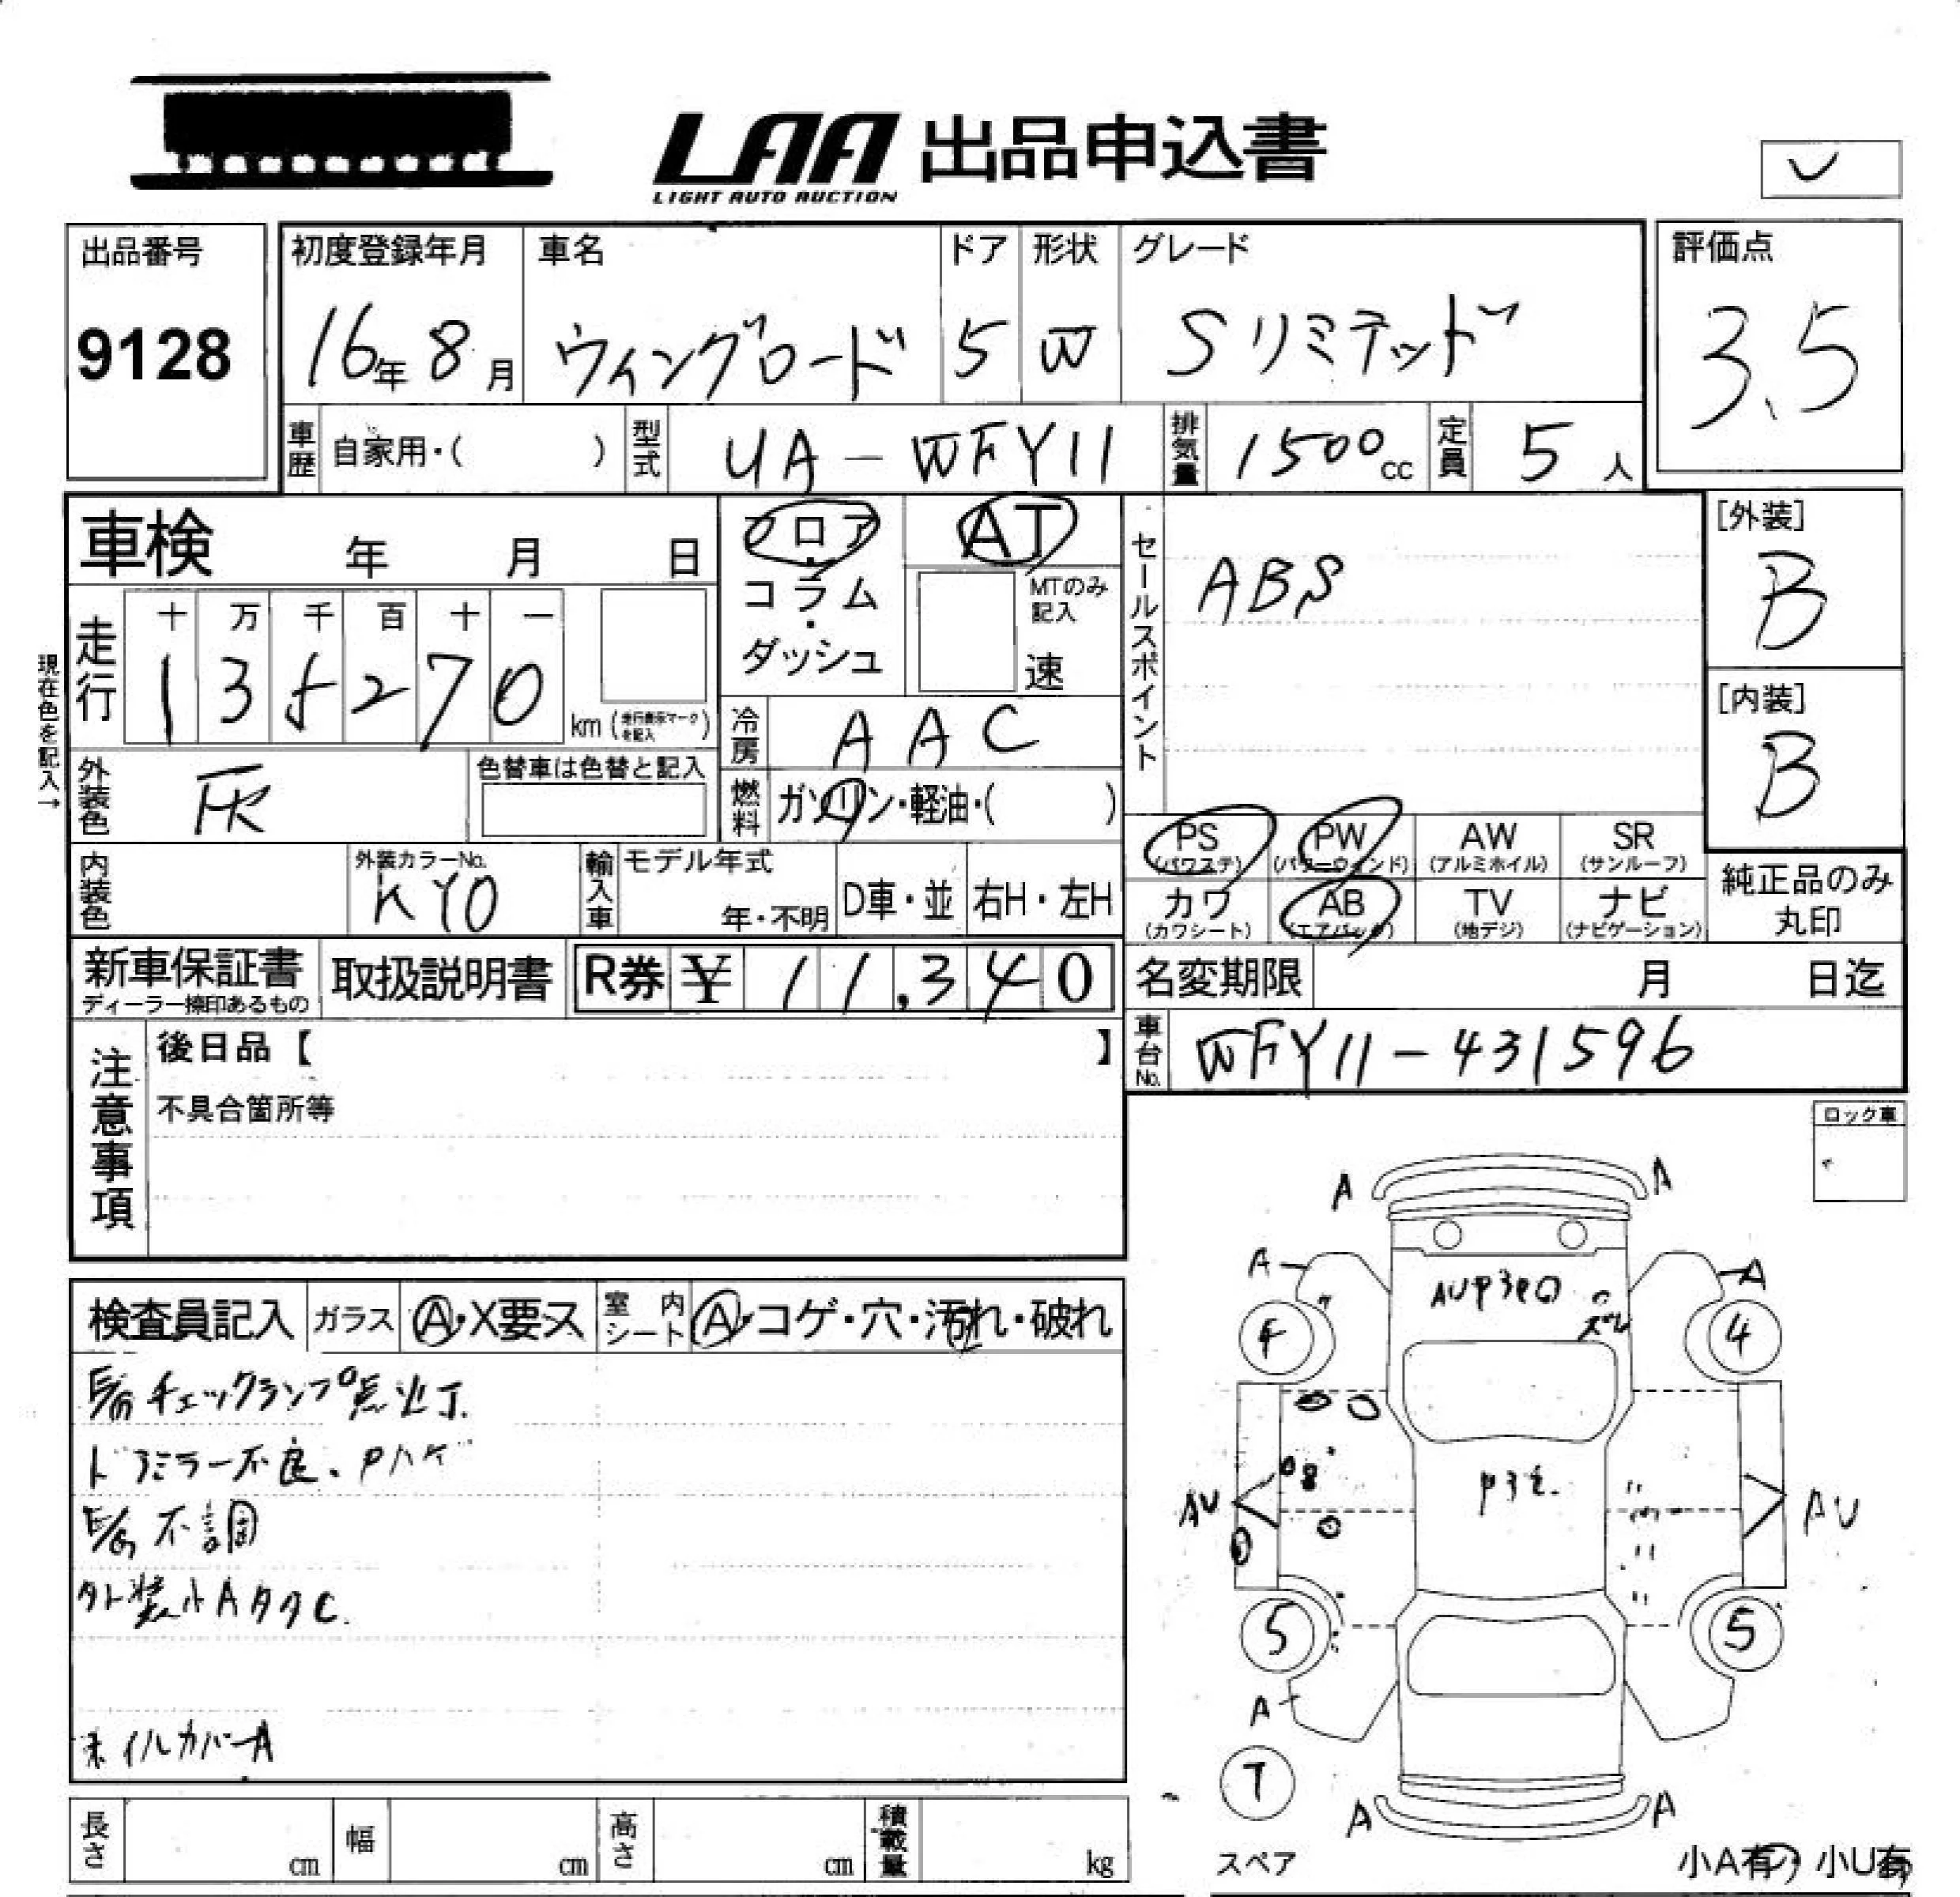 LAA 出品申込書
LIGHT AUTO AUCTION
出品番号
9128
初度登録年月
16年 8月
車名
ウイングロード
ドア
5
形状
W
グレード
Sリミテッド
評価点
3.5
車歴 自家用・( )
型式 UA-WFY11
排気量 1500cc
定員 5人
車検 年 月 日
フロア・コラム・ダッシュ
AT
MTのみ記入
速
セールスポイント
ABS
[外装]
B
[内装]
B
現在色を記入→
走行
十 万 千 百 十 一
1 3 5 2 7 0
km(走行表示マークを記入)
冷房 AAC
外装色
色替車は色替と記入
燃料 ガソリン・軽油・( )
PS (パワステ)
PW (パワーウィンド)
AW (アルミホイル)
SR (サンルーフ)
カワ (カワシート)
AB (エアバック)
TV (地デジ)
ナビ (ナビゲーション)
純正品のみ丸印
内装色
外装カラーNo.
KY0
輸入車
モデル年式
年・不明
D車・並
右H・左H
新車保証書
ディーラー捺印あるもの
取扱説明書
R券 ¥ 11,340
名変期限 月 日迄
車台No. WFY11-431596
注意事項
後日品【 】
不具合箇所等
ロック車
検査員記入
ガラス Ⓐ・X要ス
室内シート Ⓐ・コゲ・穴・汚れ・破れ
E/G チェックランプ点灯
ドアミラー不良、Pハゲ
E/G 不調
外装小Aタタ
ホイルカバーA
A
A
A
A
4
4
AU
AU
5
5
A
T
A
A
スペア
小A有・小U有
長さ cm
幅 cm
高さ cm
積載量 kg